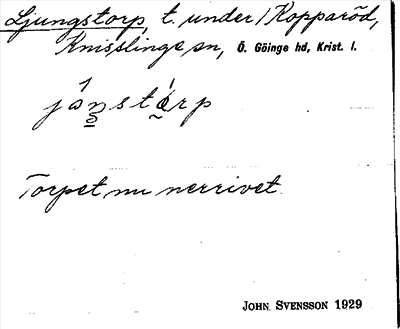 Ljungstorp, t. under 1 Kopparöd,
Knisslinge sn, Ö. Göinge hd, Krist. l.
Torpet nu nerrivet.
JOHN SVENSSON 1929